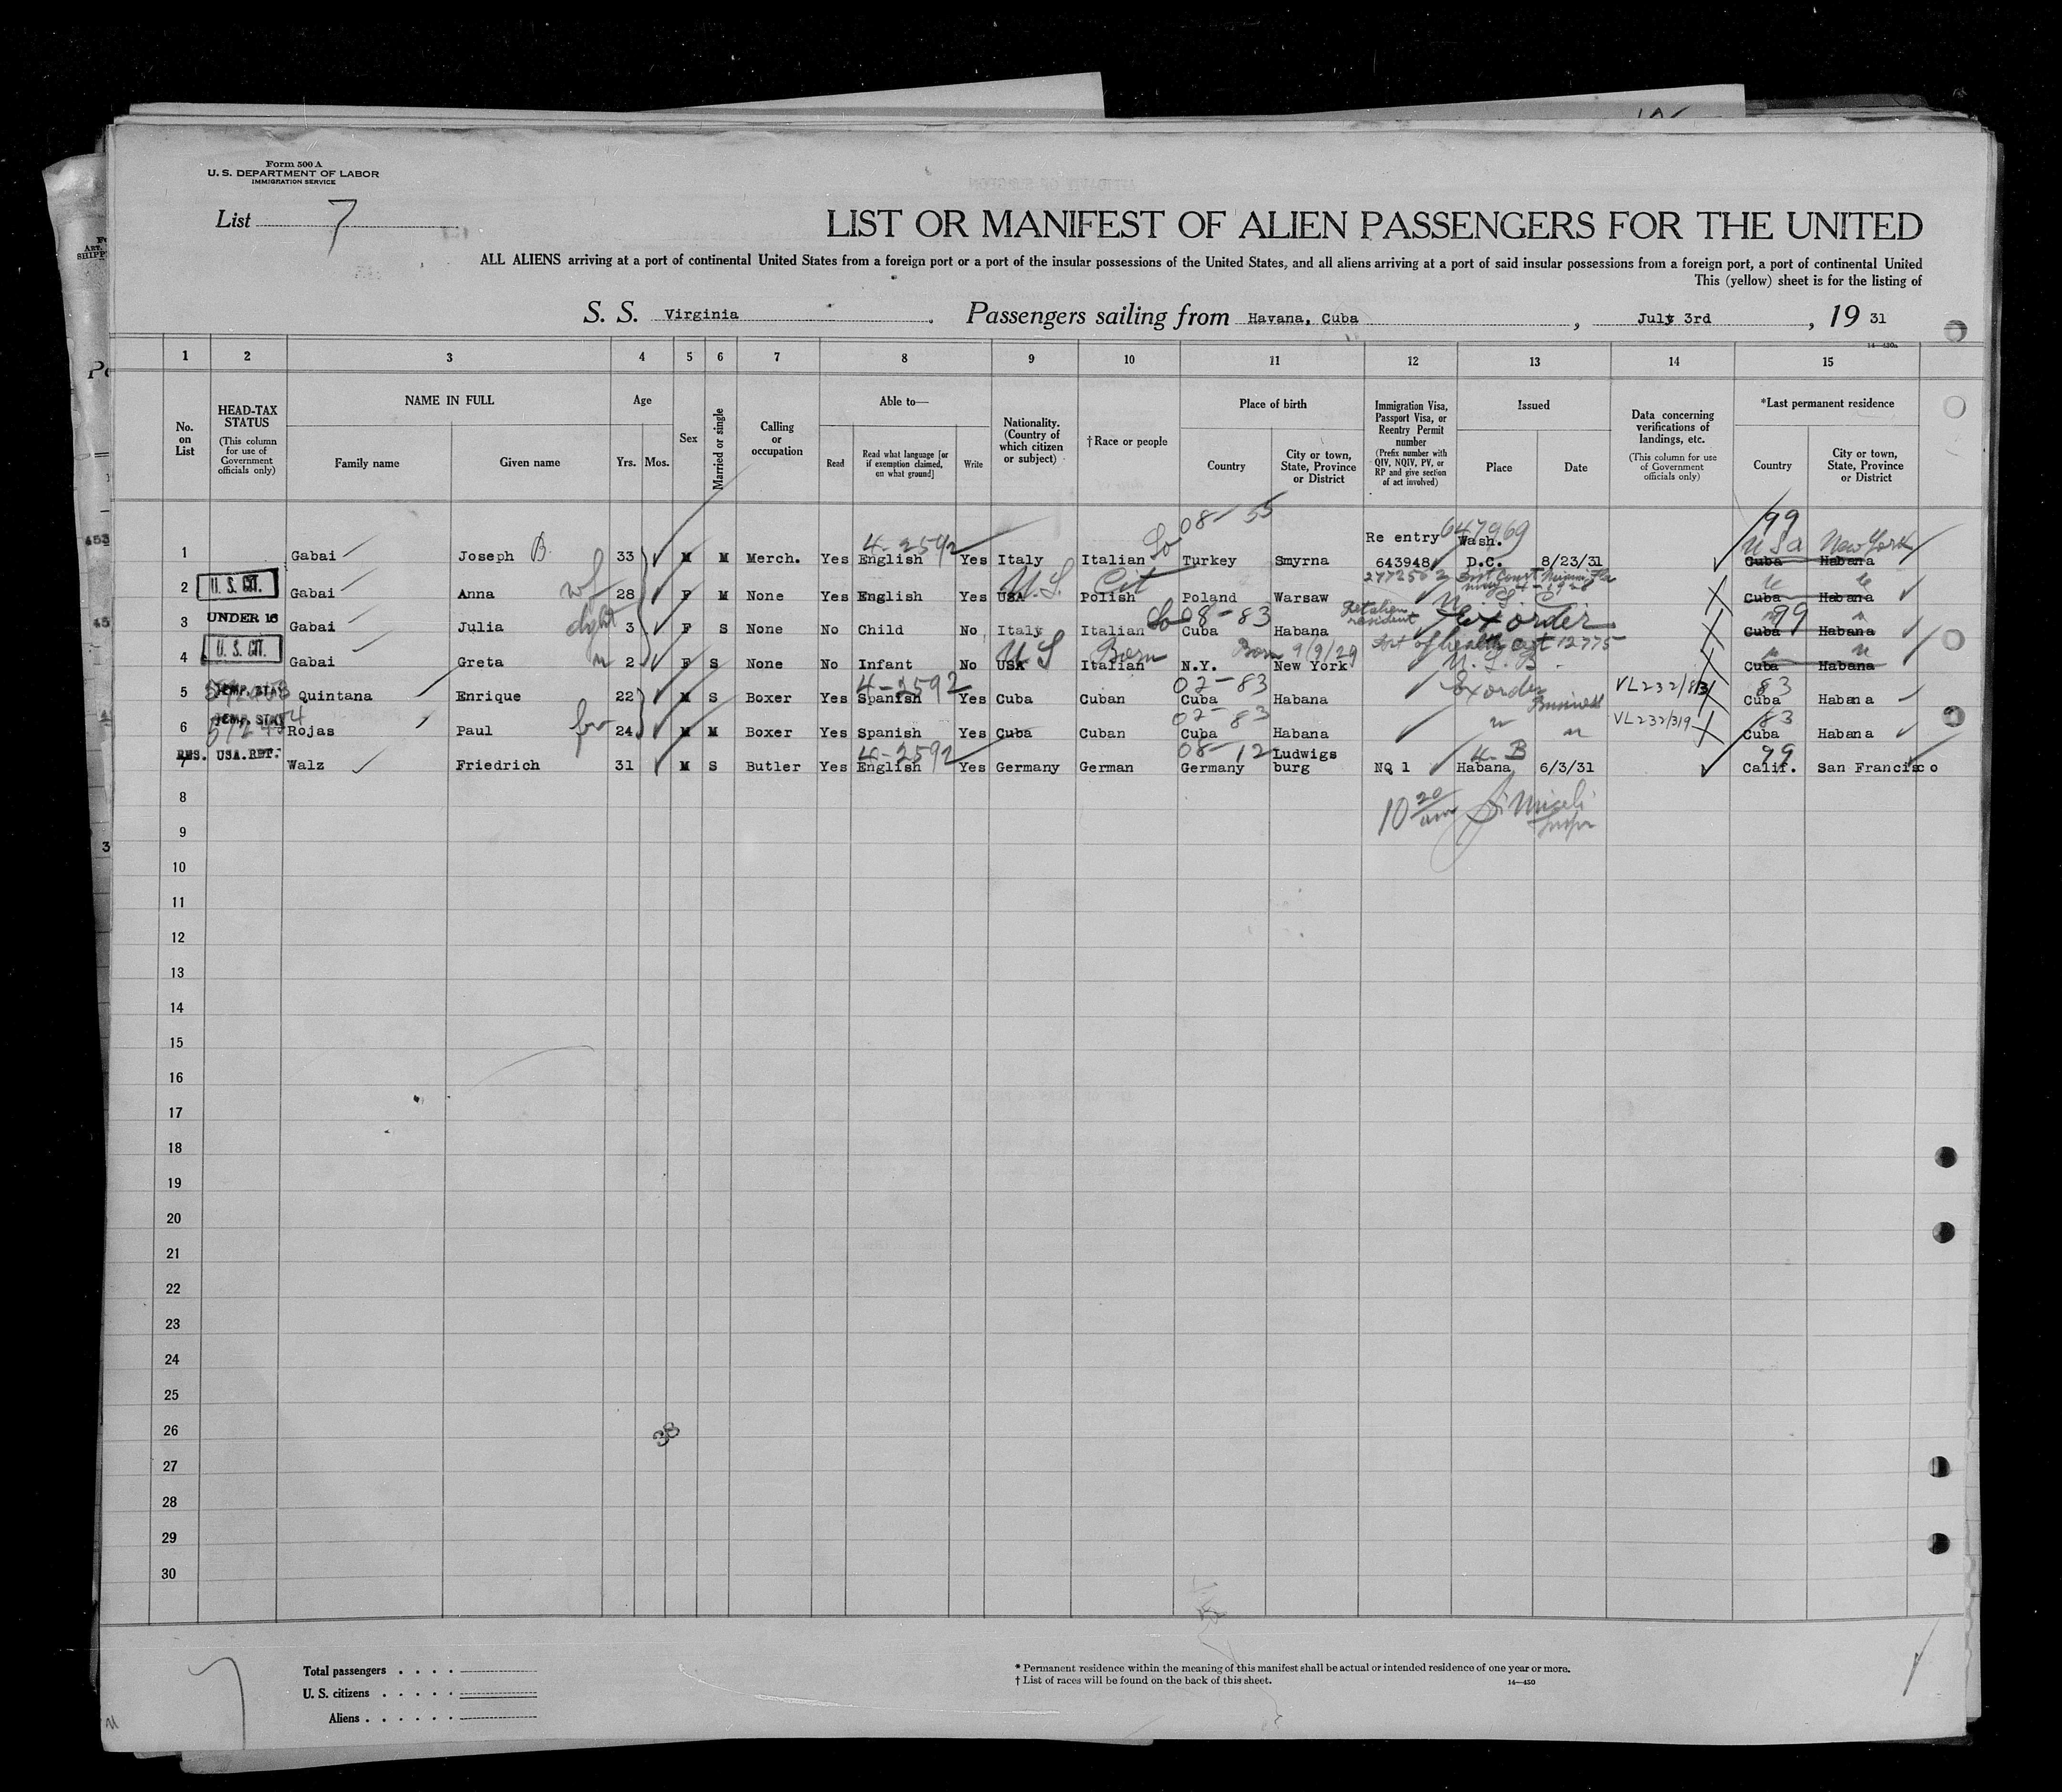 Form 500 A
U. S. DEPARTMENT OF LABOR
IMMIGRATION SERVICE
List 7
LIST OR MANIFEST OF ALIEN PASSENGERS FOR THE UNITED
ALL ALIENS arriving at a port of continental United States from a foreign port or a port of the insular possessions of the United States, and all aliens arriving at a port of said insular possessions from a foreign port, a port of continental United
This (yellow) sheet is for the listing of
S. S. Virginia Passengers sailing from Havana, Cuba , July 3rd , 19 31
1 2 3 4 5 6 7 8 9 10 11 12 13 14 15
No. on List
HEAD-TAX STATUS (This column for use of Government officials only)
NAME IN FULL Family name Given name
Age Yrs. Mos.
Sex
Married or single
Calling or occupation
Able to— Read Read what language [or if exemption claimed, on what ground] Write
Nationality. (Country of which citizen or subject)
† Race or people
Place of birth Country City or town, State, Province or District
Immigration Visa, Passport Visa, or Reentry Permit number (Prefix number with QIV, NQIV, PV, or RP and give section of act involved)
Issued Place Date
Data concerning verifications of landings, etc. (This column for use of Government officials only)
*Last permanent residence Country City or town, State, Province or District
08-55 647969 99
4-2592 Re entry Wash. USA New York
1 Gabai Joseph B. 33 M M Merch. Yes English Yes Italy Italian Turkey Smyrna 643948 D.C. 8/23/31 Cuba Habana
U. S. CIT. U.S. Cit 2772562 Dist Court Miami Fla
2 Gabai Anna wf 28 F M None Yes English Yes USA Polish Poland Warsaw Cuba Habana
UNDER 16 08-83 Ret alien resident Ex order 99
3 Gabai Julia dght 3 F S None No Child No Italy Italian Cuba Habana Cuba Habana
U. S. CIT. US Born Born 9/9/29 of health cert 12775
4 Gabai Greta 2 F S None No Infant No USA Italian N.Y. New York Cuba Habana
TEMP. STAY 4-2592 02-83 Ex order Business VL232/813 83
5 Quintana Enrique 22 M S Boxer Yes Spanish Yes Cuba Cuban Cuba Habana Cuba Habana
TEMP. STAY 02-83 VL232/319 83
6 Rojas Paul 24 M M Boxer Yes Spanish Yes Cuba Cuban Cuba Habana Cuba Habana
RES. USA. RET. 4-2592 08-12 4-B 99
7 Walz Friedrich 31 M S Butler Yes English Yes Germany German Germany Ludwigs burg NQ 1 Habana 6/3/31 Calif. San Francisco
8 10 20 am
9
10
11
12
13
14
15
16
17
18
19
20
21
22
23
24
25
26 38
27
28
29
30
Total passengers . . . .
U. S. citizens . . . . .
Aliens . . . . . .
* Permanent residence within the meaning of this manifest shall be actual or intended residence of one year or more.
† List of races will be found on the back of this sheet.
14—450